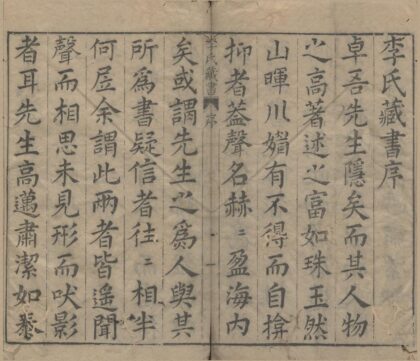 李氏藏書序
卓吾先生隱矣而其人物
之高著述之富如珠玉然
山暉川媚有不得而自揜
抑者蓋聲名赫〻盈海内
李氏藏書 序
矣或謂先生之為人與其
所為書疑信者往〻相半
何居余謂此兩者皆遙聞
聲而相思未見形而吠影
者耳先生高邁肅潔如